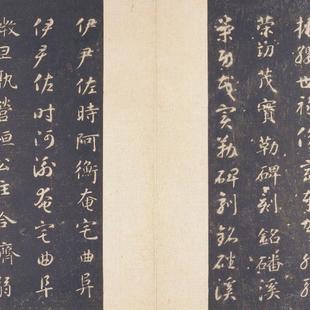 振纓世祿侈富車駕肥輕
策功茂實勒碑刻銘磻溪
策功茂實勒碑刻銘磻溪
伊尹佐時阿衡奄宅曲阜
伊尹佐時阿衡奄宅曲阜
微旦孰營桓公匡合濟弱